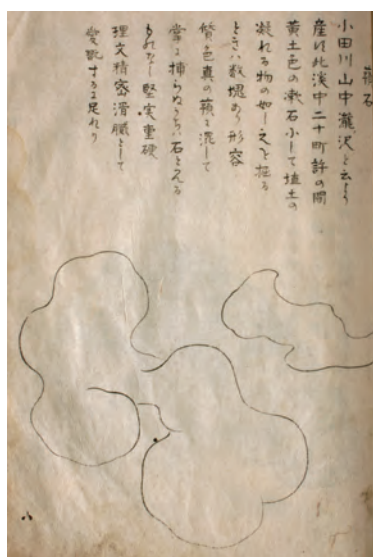 石
小田川山中瀧沢と云より
産す此渓中二十町許の間
黄土色の漱石小して埴土の
凝れる物の如し之を掘る
ときハ数塊あり形容
質色真の に混して
掌に捧らねうちハ石とみる
ものなし堅実重硬
理文精密滑膩として
愛翫するに足れり
八